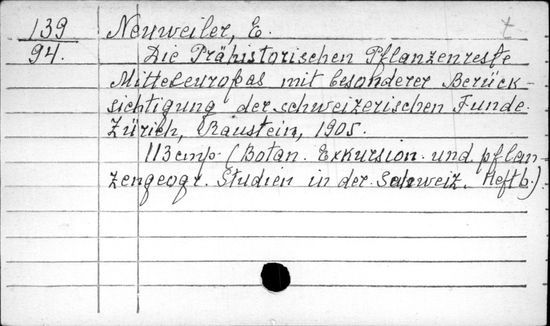 139 Neuweiler, E. t
94. Die Prähistorischen Pflanzenreste
Mitteleuropas mit besonderer Berück-
sichtigung der schweizerischen Funde.
Zürich, Raustein, 1905.
113 стр. (Botan. Exkursion. und pflan-
zengeogr. Studien in der Schweiz. Heft 6.)